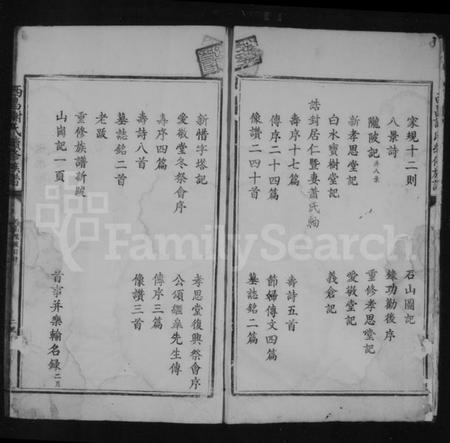 家規十二則
石山圖記
八景詩
錄功勤後序
隴陂記
重修孝思堂記
新孝思堂記
愛敬堂記
白水寶樹堂記
義倉記
誥封居仁暨妻蕭氏軸
壽序十七篇
壽詩五首
傳序二十四篇
節婦傳文四篇
像讚二四十首
墓誌銘二篇
新惜字塔記
孝思堂復興祭會序
愛敬堂冬祭會序
公頌繼皋先生傳
壽序四篇
傳序三篇
壽詩八首
像讚三首
墓誌銘二首
老跋
重修族譜新跋
山崗記一頁
首事并樂輸名錄二頁
FamilySearch